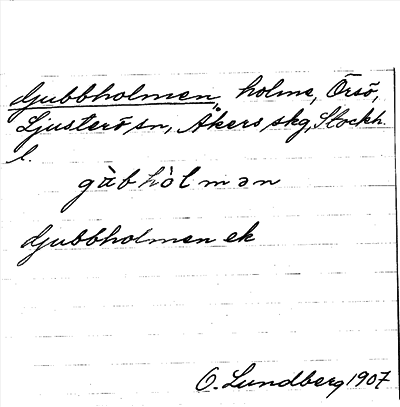 Gubbholmen, holme, Örsö,
Ljusterö sn, Åkers skg, Stockh.
l.
gàb hòlmən
Gubbholmen ek
O. Lundberg 1907